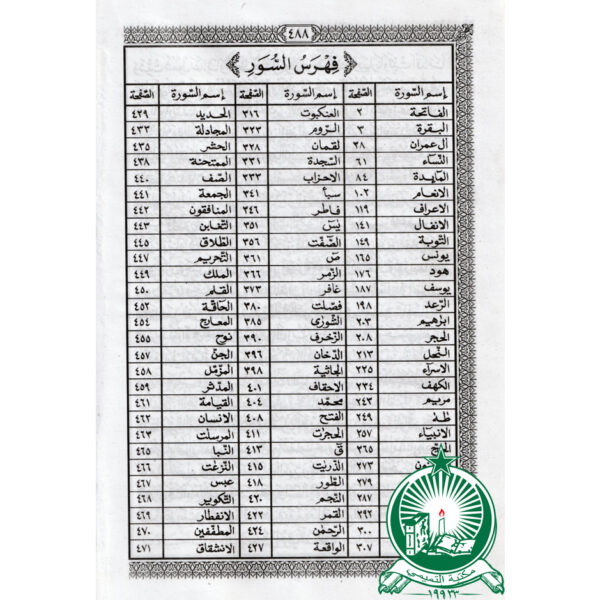 ٤٨٨
فِهْرَسُ السُّوَرِ
إسم السورة الصفحة إسم السورة الصفحة إسم السورة الصفحة
الفاتحة ٢ العنكبوت ٣١٦ الحديد ٤٢٩
البقرة ٣ الروم ٣٢٣ المجادلة ٤٣٣
آل عمران ٣٨ لقمان ٣٢٨ الحشر ٤٣٥
النساء ٦١ السجدة ٣٣١ الممتحنة ٤٣٨
المايدة ٨٤ الاحزاب ٢٣٣ الصف ٤٤٠
الانعام ١٠٢ سبأ ٣٤١ الجمعة ٤٤١
الاعراف ١١٩ فاطر ٣٤٦ المنافقون ٤٤٢
الانفال ١٤١ يس ٣٥١ التغابن ٤٤٣
التوبة ١٤٩ الصفت ٣٥٦ الطلاق ٤٤٥
يونس ١٦٥ ص ٣٦١ التحريم ٤٤٧
هود ١٧٦ الزمر ٣٦٦ الملك ٤٤٩
يوسف ١٨٧ غافر ٣٧٣ القلم ٤٥٠
الرعد ١٩٨ فصلت ٣٨٠ الحاقة ٤٥٢
ابرهيم ٢٠٣ الشورى ٣٨٥ المعارج ٤٥٤
الحجر ٢٠٨ الزخرف ٣٩٠ نوح ٤٥٥
النحل ٢١٣ الدخان ٣٩٦ الجن ٤٥٧
الاسراء ٢٢٥ الجاثية ٣٩٨ المزمل ٤٥٨
الكهف ٢٣٤ الاحقاف ٤٠١ المدثر ٤٥٩
مريم ٢٤٣ محمد ٤٠٤ القيامة ٤٦١
طه ٢٤٩ الفتح ٤٠٨ الانسان ٤٦٢
الانبياء ٢٥٧ الحجرت ٤١١ المرسلت ٤٦٣
٢٦٥ ق ٤١٣ النبا ٤٦٥
٢٧٣ الذريت ٤١٥ النزعت ٤٦٦
٢٧٩ الطور ٤١٨ عبس ٤٦٧
٢٨٧ النجم ٤٢٠ التكوير ٤٦٨
٢٩٢ القمر ٤٢٢ الانفطار ٤٦٩
٣٠٠ الرحمن ٤٢٤ المطففين ٤٧٠
٣٠٧ الواقعة ٤٢٧ الانشقاق ٤٧١
مكتبة التميمي
١٩٩٢٣